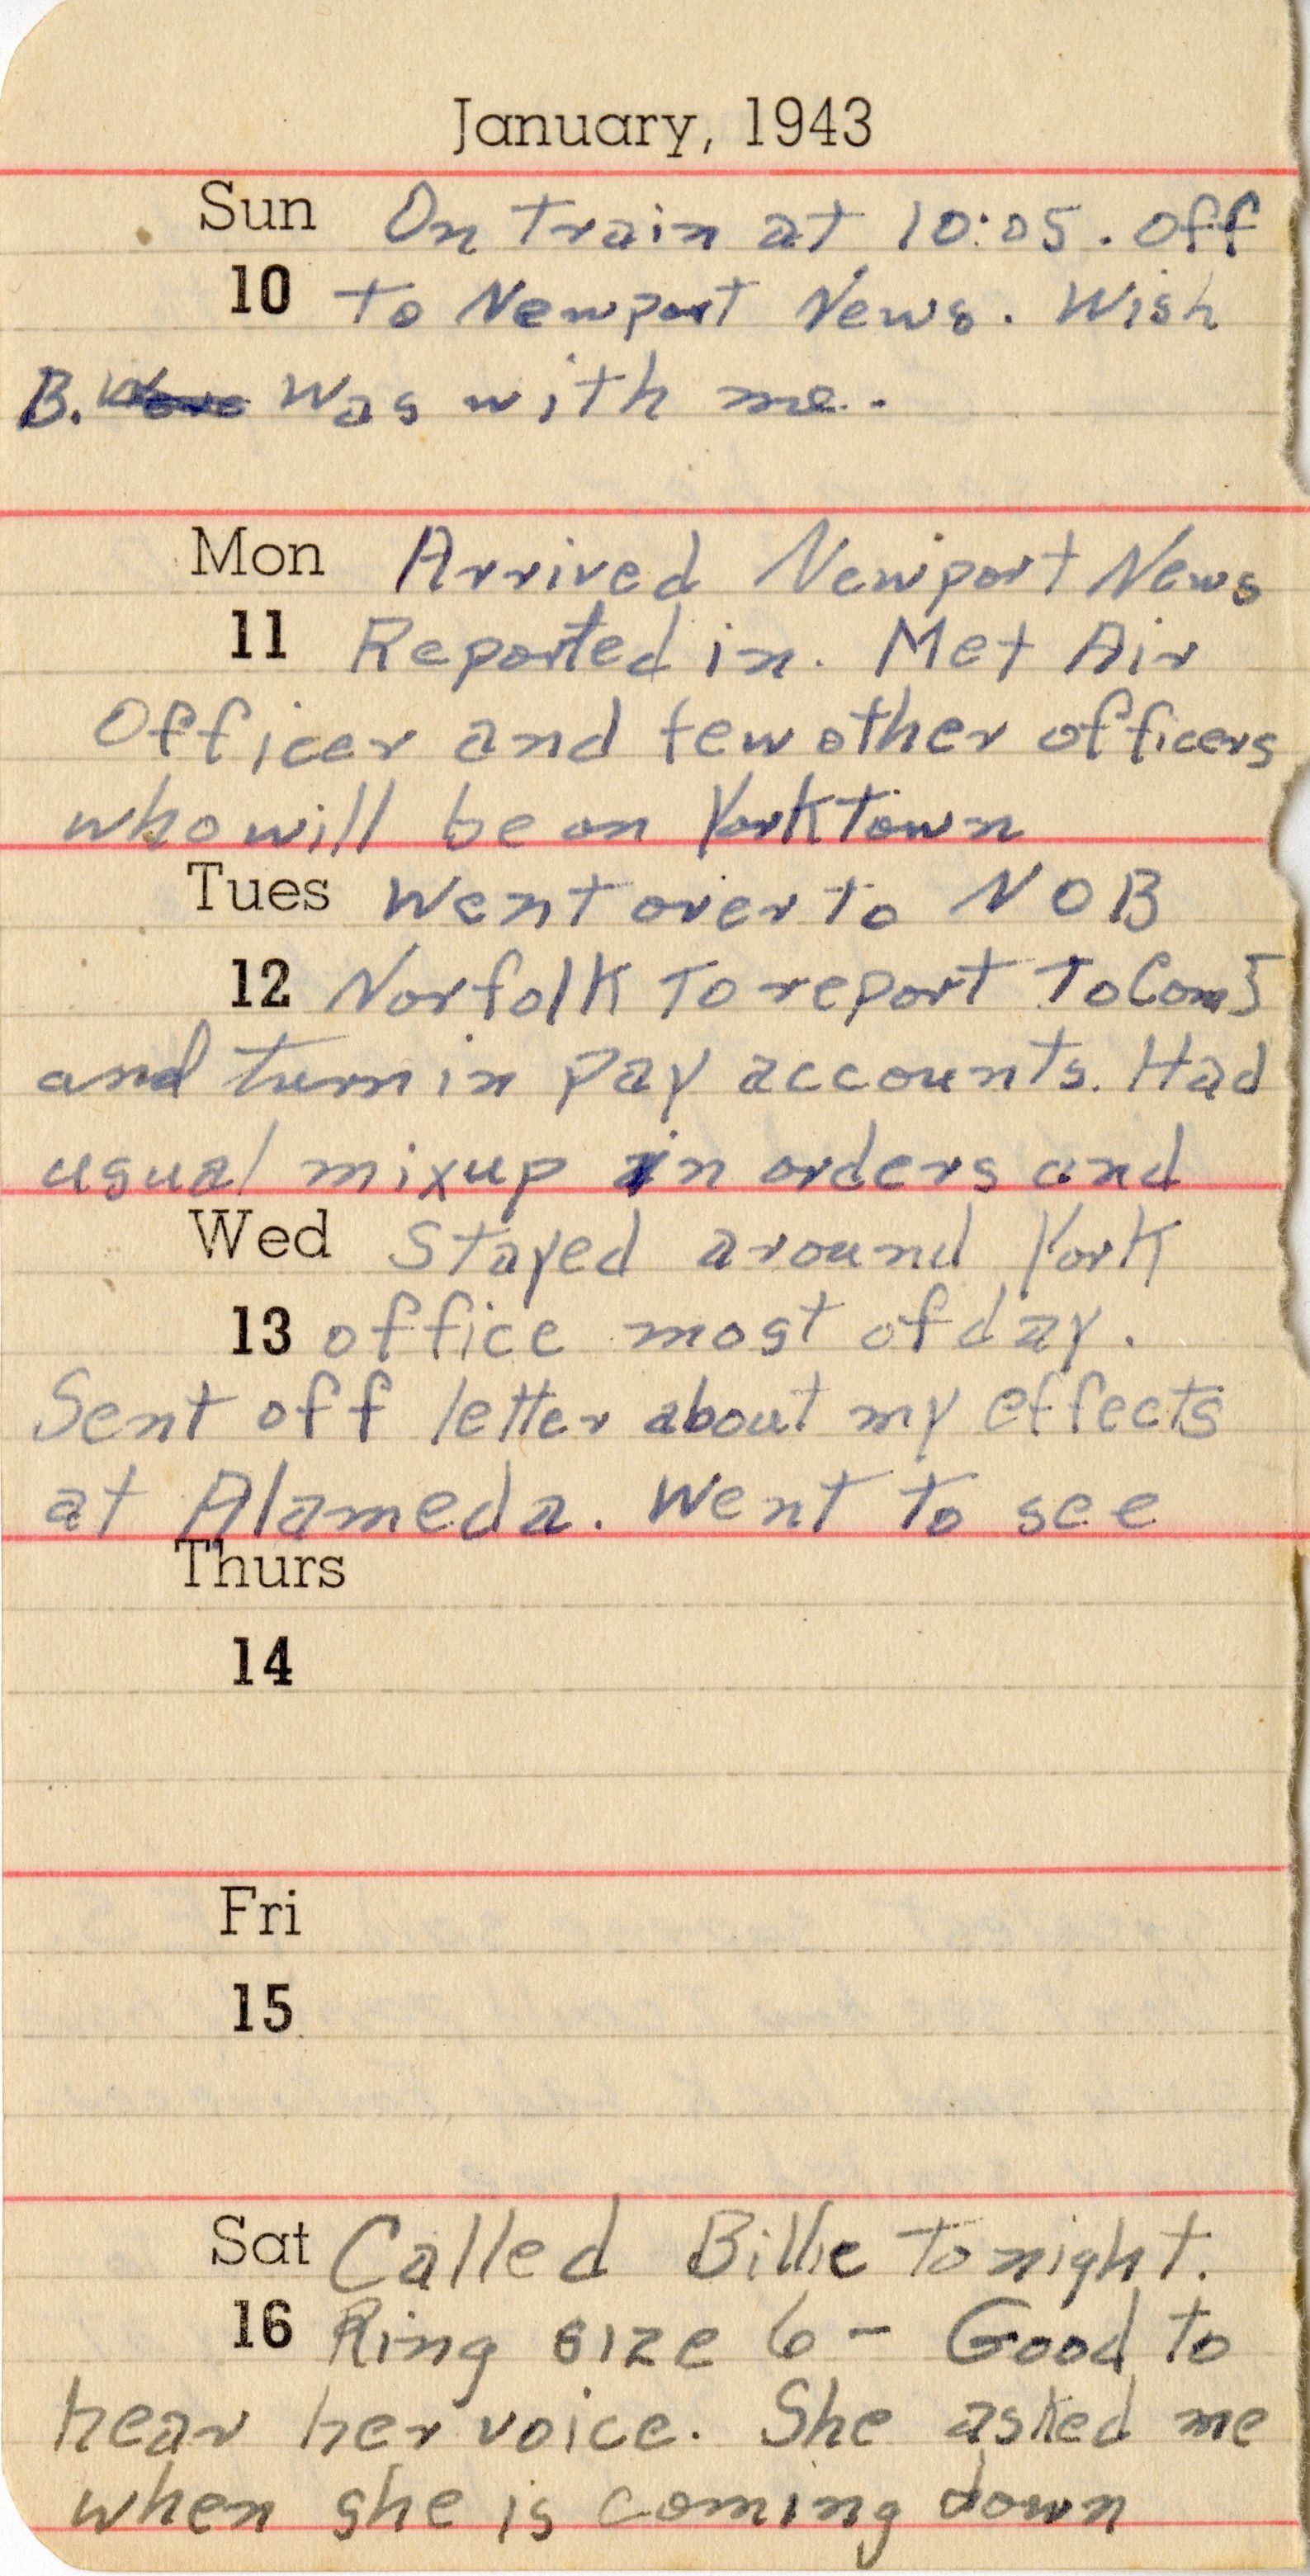 January, 1943
Sun On train at 10:05. Off
10 to Newport News. Wish
B. Was with me.
Mon Arrived Newport News
11 Reported in. Met Air
Officer and few other officers
who will be on Yorktown
Tues Went over to NOB
12 Norfolk to report to Com5
and turn in pay accounts. Had
usual mixup in orders and
Wed Stayed around York
13 office most of day.
Sent off letter about my effects
at Alameda. Went to see
Thurs
14
Fri
15
Sat Called Billie tonight.
16 Ring size 6 - Good to
hear her voice. She asked me
when she is coming down